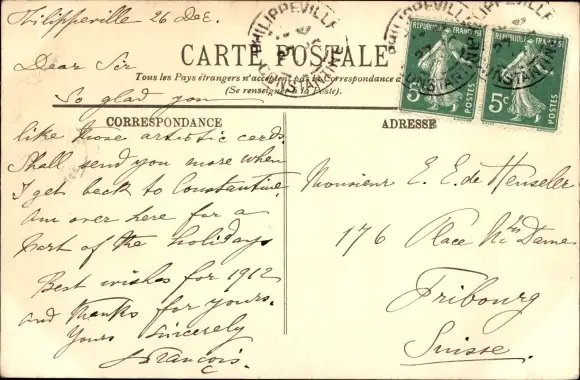 Philippeville 26 Dec.
CARTE POSTALE
Tous les Pays étrangers n'acceptent pas la Correspondance à
(Se renseigner à la Poste).
CORRESPONDANCE
Dear Sir
So glad you
like those artistic cards.
Shall send you more when
I get back to Constantine.
Am over here for a
Part of the holidays
Best wishes for 1912
and thanks for yours.
Yours Sincerely
François.
ADRESSE
Monsieur E. E. de Heuseler
176 Place Nre Dame
Fribourg
Suisse.
REPUBLIQUE FRANÇAISE
5c
POSTES
REPUBLIQUE FRANÇAISE
5c
POSTES
PHILIPPEVILLE
CONSTANTINE
PHILIPPEVILLE
CONSTANTINE
PHILIPPEVILLA
CONSTANTINE